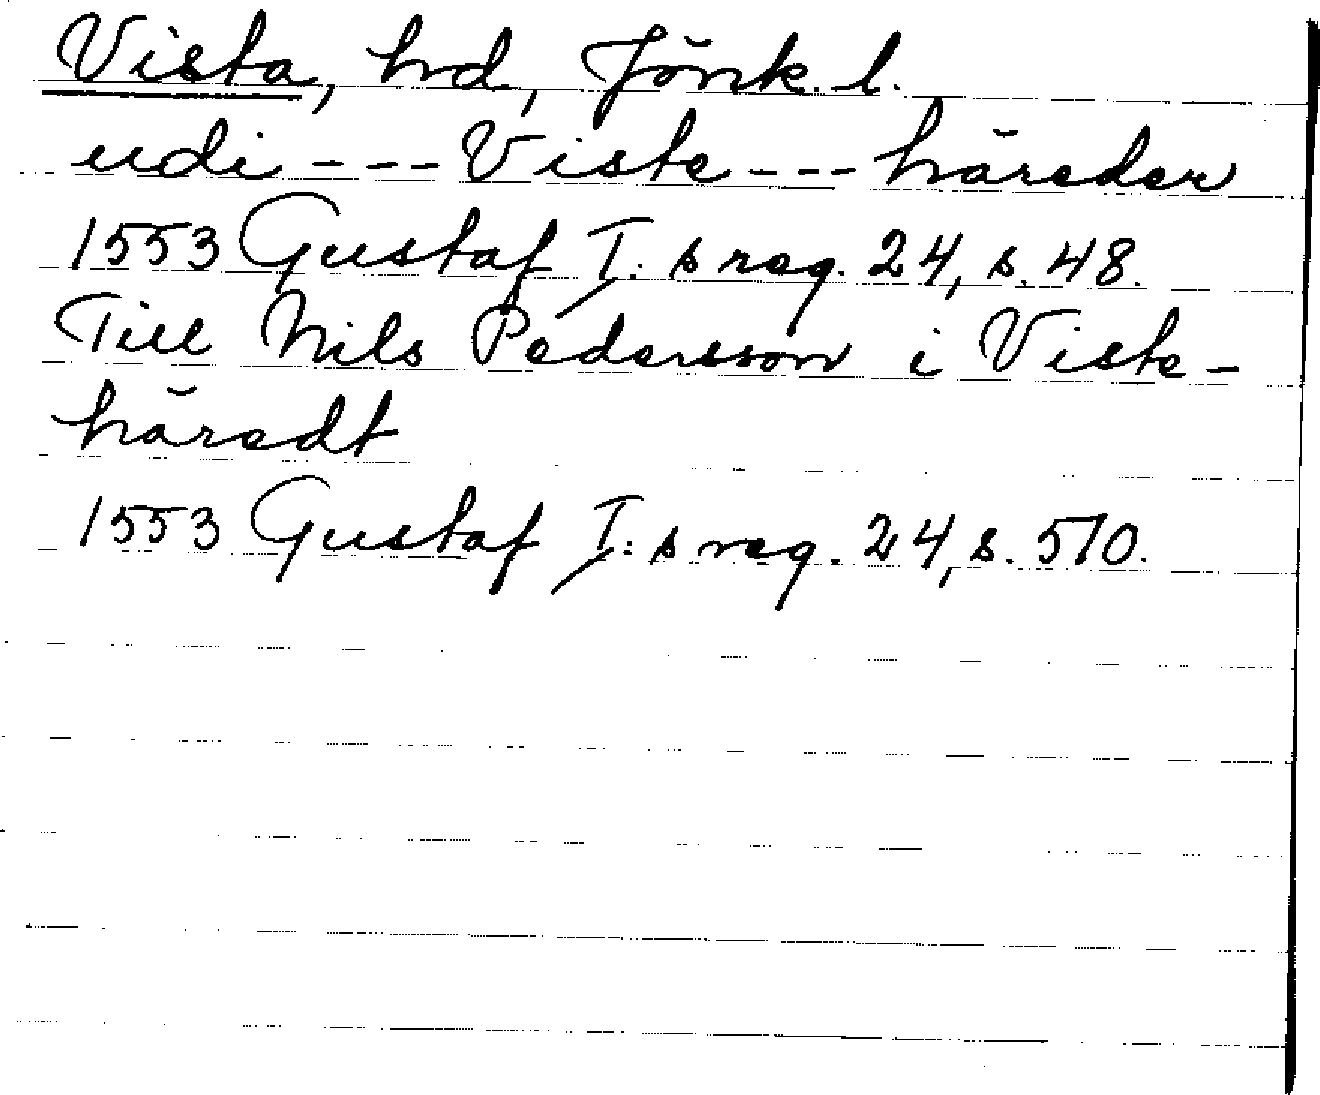 Vista, hd, Jönk. l.
udi --- Viste --- häreder
1553 Gustaf I: s reg. 24, s. 48.
Till Nils Pedersson i Viste-
häredt
1553 Gustaf I: s reg. 24, s. 510.